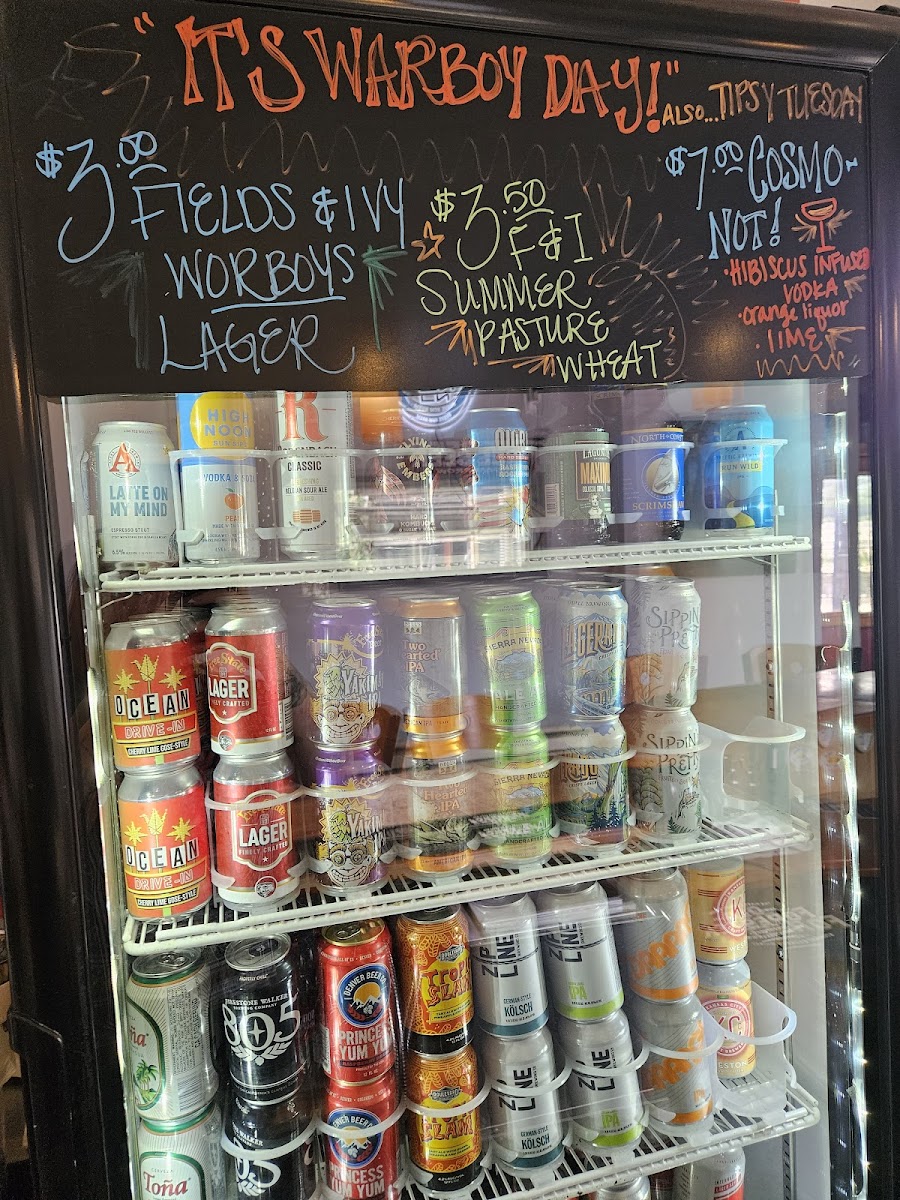 "IT'S WARBOY DAY!"
ALSO... TIPSY TUESDAY
$3.00
FIELDS & IVY
WORBOYS
LAGER
$3.50
F&I
SUMMER
PASTURE
WHEAT
$7.00 COSMO-
NOT!
·HIBISCUS INFUSED
VODKA
·orange liquor
·LIME
A
LATTE ON
MY MIND
ESPRESSO STOUT
HIGH
NOON
VODKA &
PEACH
R
CLASSIC
BELGIAN SOUR ALE
FLYING
EMBER
KOMBUCHA
MAXIMUS
NORTH COAST
SCRIMSHAW
RUN WILD
OCEAN
DRIVE-IN
CHERRY LIME GOSE-STYLE
OCEAN
DRIVE-IN
CHERRY LIME GOSE-STYLE
LAGER
FINELY CRAFTED
LAGER
FINELY CRAFTED
TWO
HEARTED
IPA
Hearted
IPA
SIERRA NEVADA
SIERRA NEVADA
SIPPIN
PRETTY
SIPPIN
PRETTY
Toña
Toña
FIRESTONE WALKER
BREWING COMPANY
805
WALKER
805
DENVER BEER CO
PRINCESS
YUM YUM
DENVER BEER CO
PRINCESS
YUM YUM
BOULEVARD
TROPI
SLAM
BOULEVARD
SLAM
ZIP
LINE
GERMAN-STYLE
KÖLSCH
ZIP
LINE
GERMAN-STYLE
KÖLSCH
ZIP
LINE
IPA
ZIP
LINE
IPA
K
KC